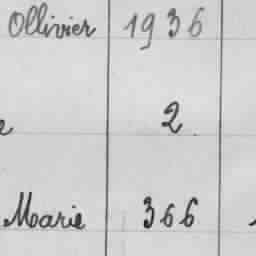 Ollivier 1936
2
Marie 366